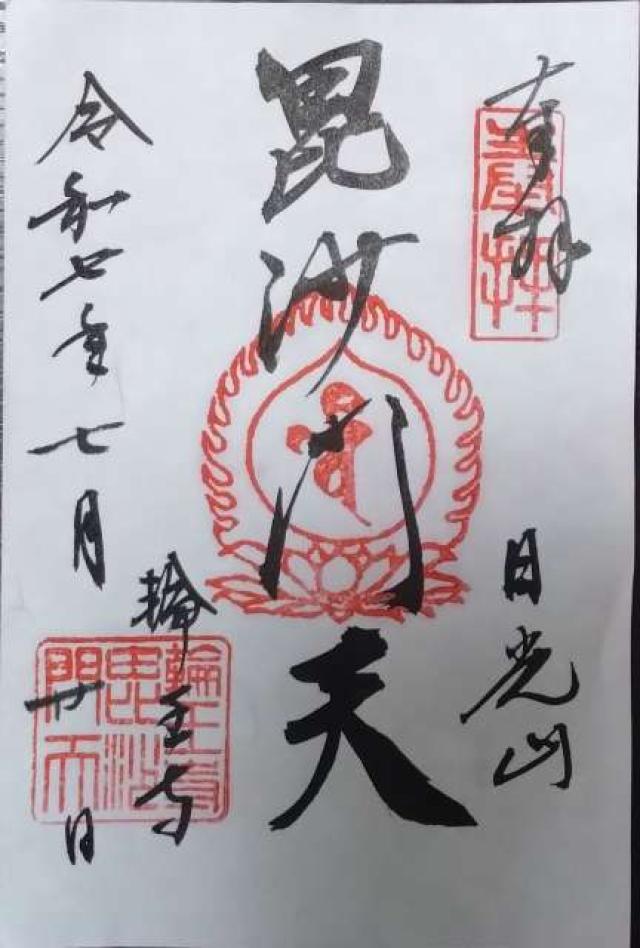 奉拝
日光山
毘沙门天
輪王寺
令和七年七月廿日
奉拝
輪王寺
毘沙
門天